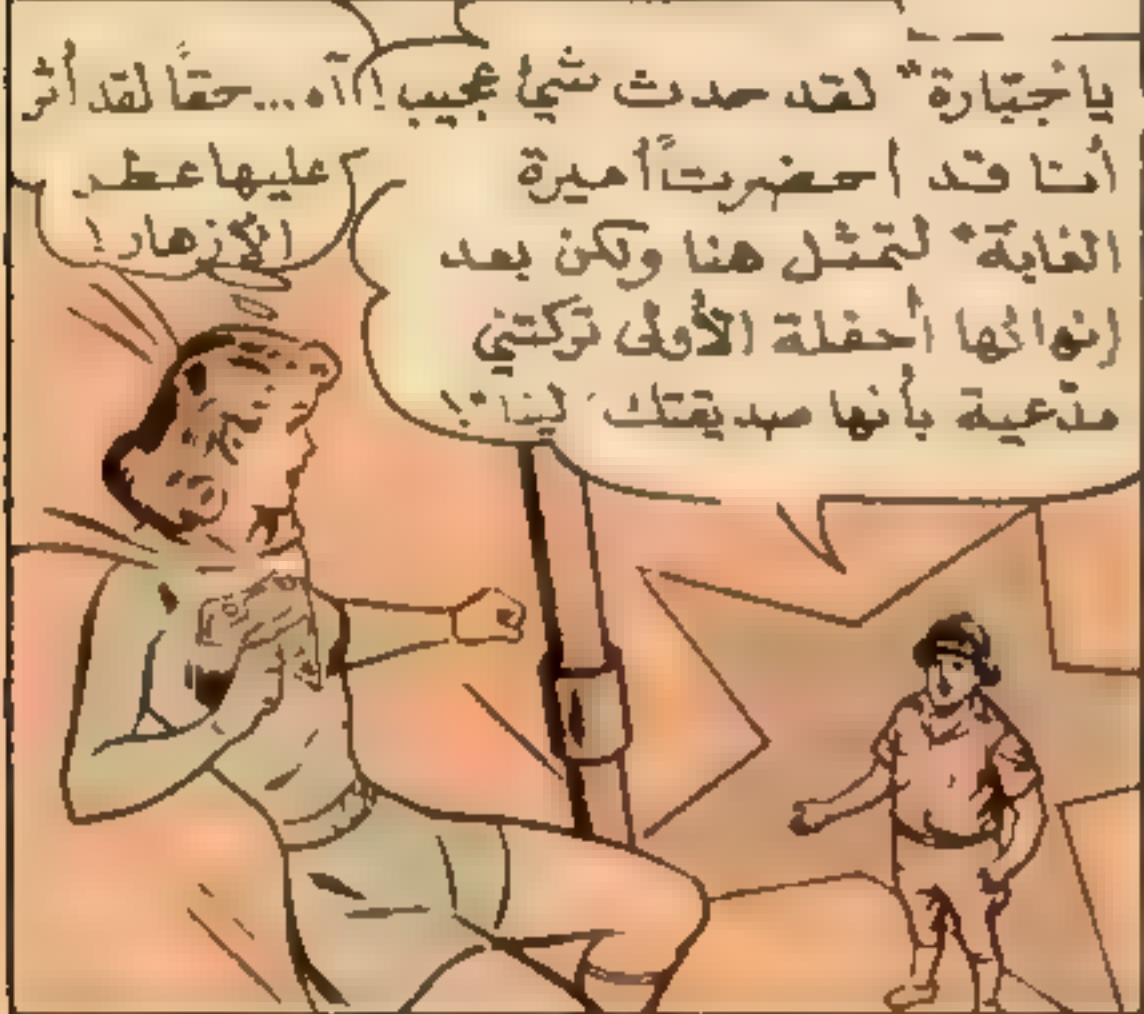 يا "جبّارة" لقد حدث شيْ عجيب!
أنا قد أحضرت أميرة
الغابة" لتمثل هنا ولكن بعد
أحفلة الأولى تركتني
مدّعية بأنها صديقتك "لينا"!
آه...حقاً لقد أثر
عليها عطر
الأزهار!